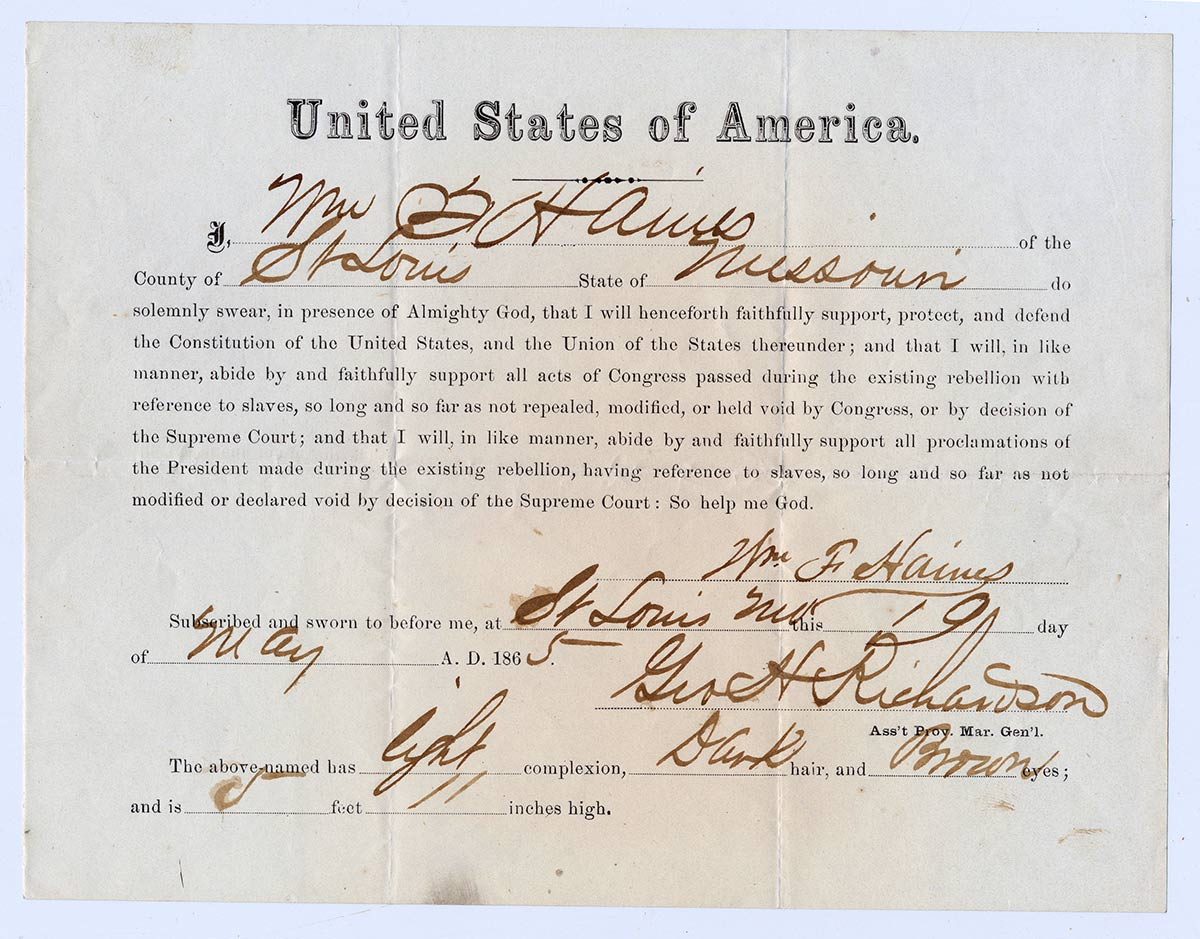 United States of America.
I, Wm F. Haines of the
County of St Louis State of Missouri do
solemnly swear, in presence of Almighty God, that I will henceforth faithfully support, protect, and defend
the Constitution of the United States, and the Union of the States thereunder; and that I will, in like
manner, abide by and faithfully support all acts of Congress passed during the existing rebellion with
reference to slaves, so long and so far as not repealed, modified, or held void by Congress, or by decision of
the Supreme Court; and that I will, in like manner, abide by and faithfully support all proclamations of
the President made during the existing rebellion, having reference to slaves, so long and so far as not
modified or declared void by decision of the Supreme Court: So help me God.
Wm. F. Haines
Subscribed and sworn to before me, at St Louis Mo this 19 day
of May A. D. 1865.
Geo H Richardson
Ass't Prov. Mar. Gen'l.
The above-named has light complexion, Dark hair, and Brown eyes;
and is 5 feet 11 inches high.